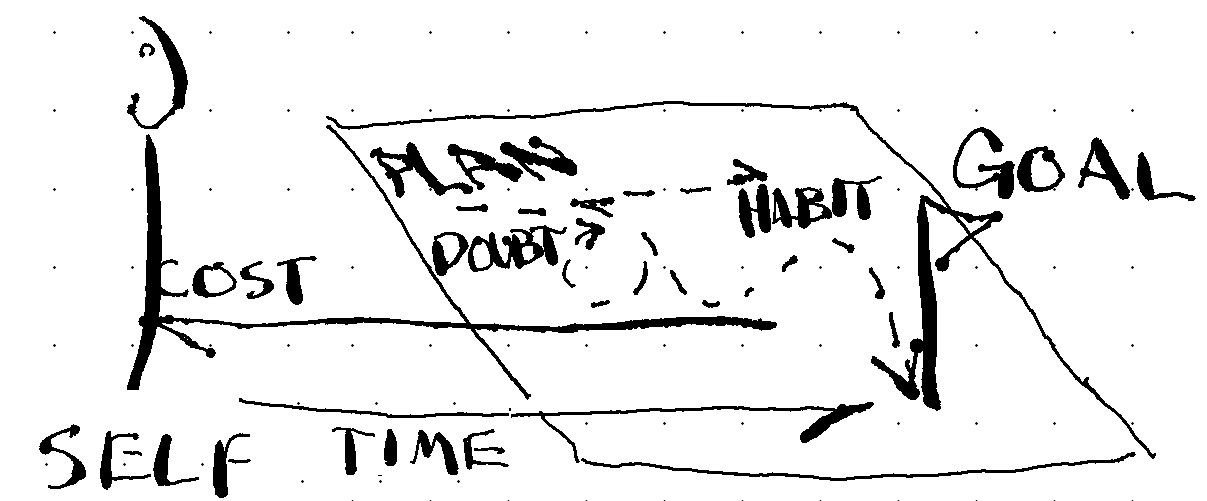 PLAN
GOAL
HABIT
DOUBT
COST
SELF TIME